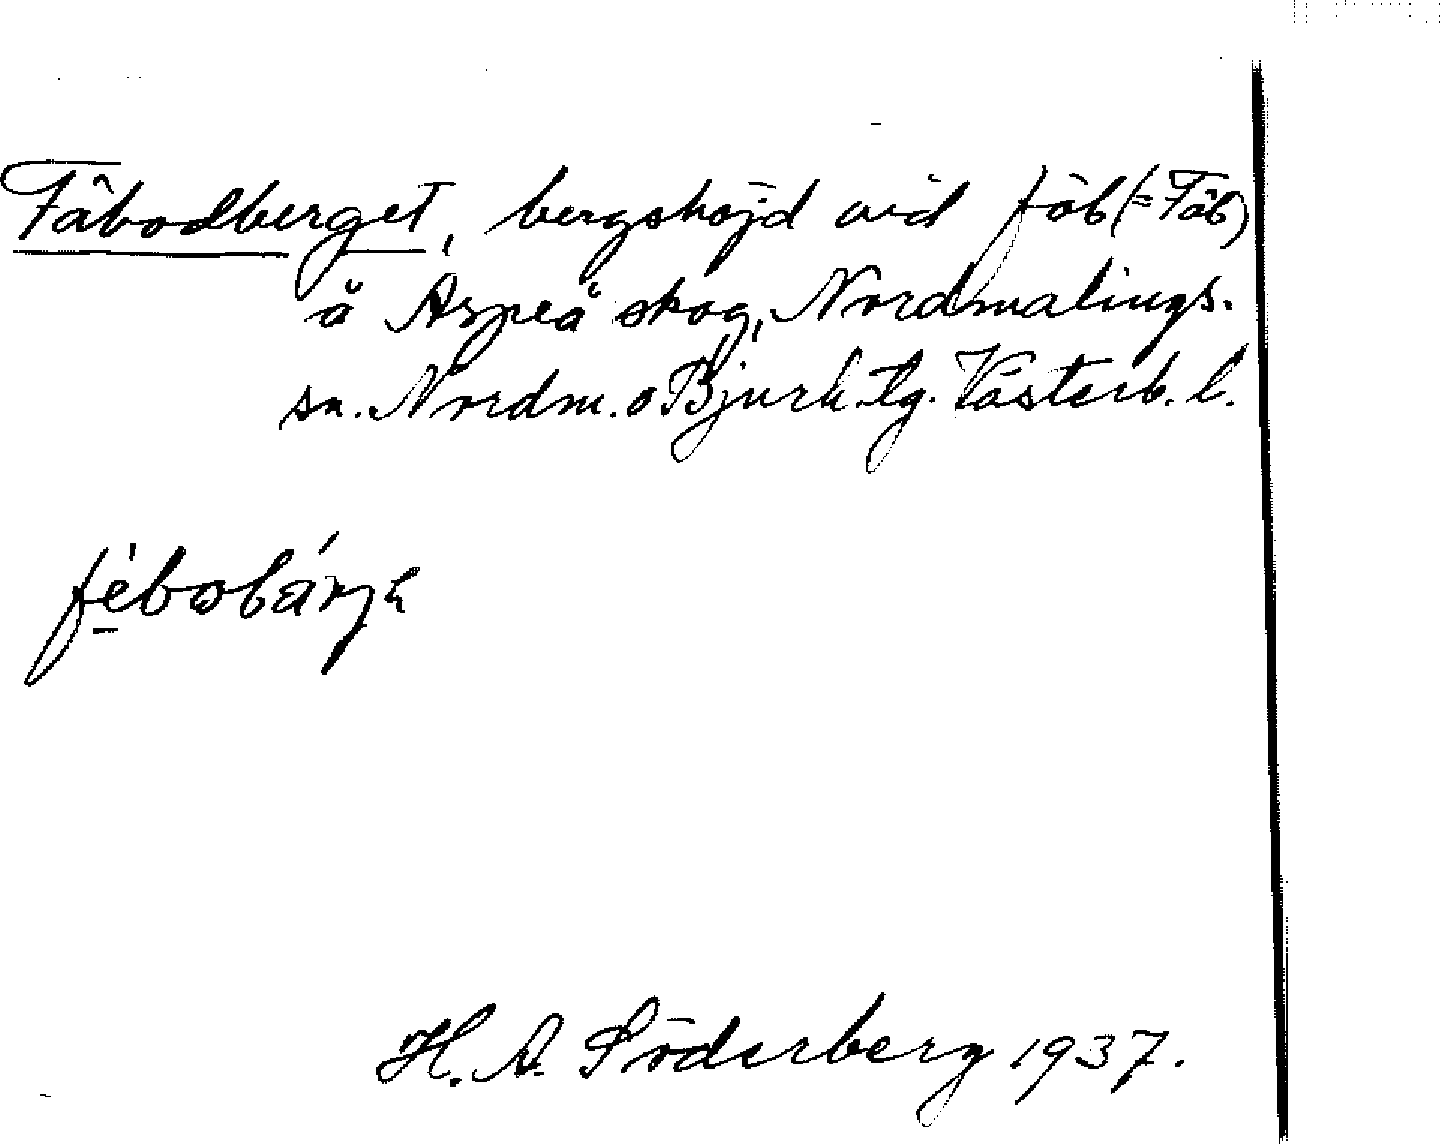 Fåbodberget, bergshöjd vid fäb (= Fäb)
å Aspeå skog, Nordmalings.
sn. Nordm. o Bjurh. tg. Västerb. l.
H. A. Söderberg 1937.